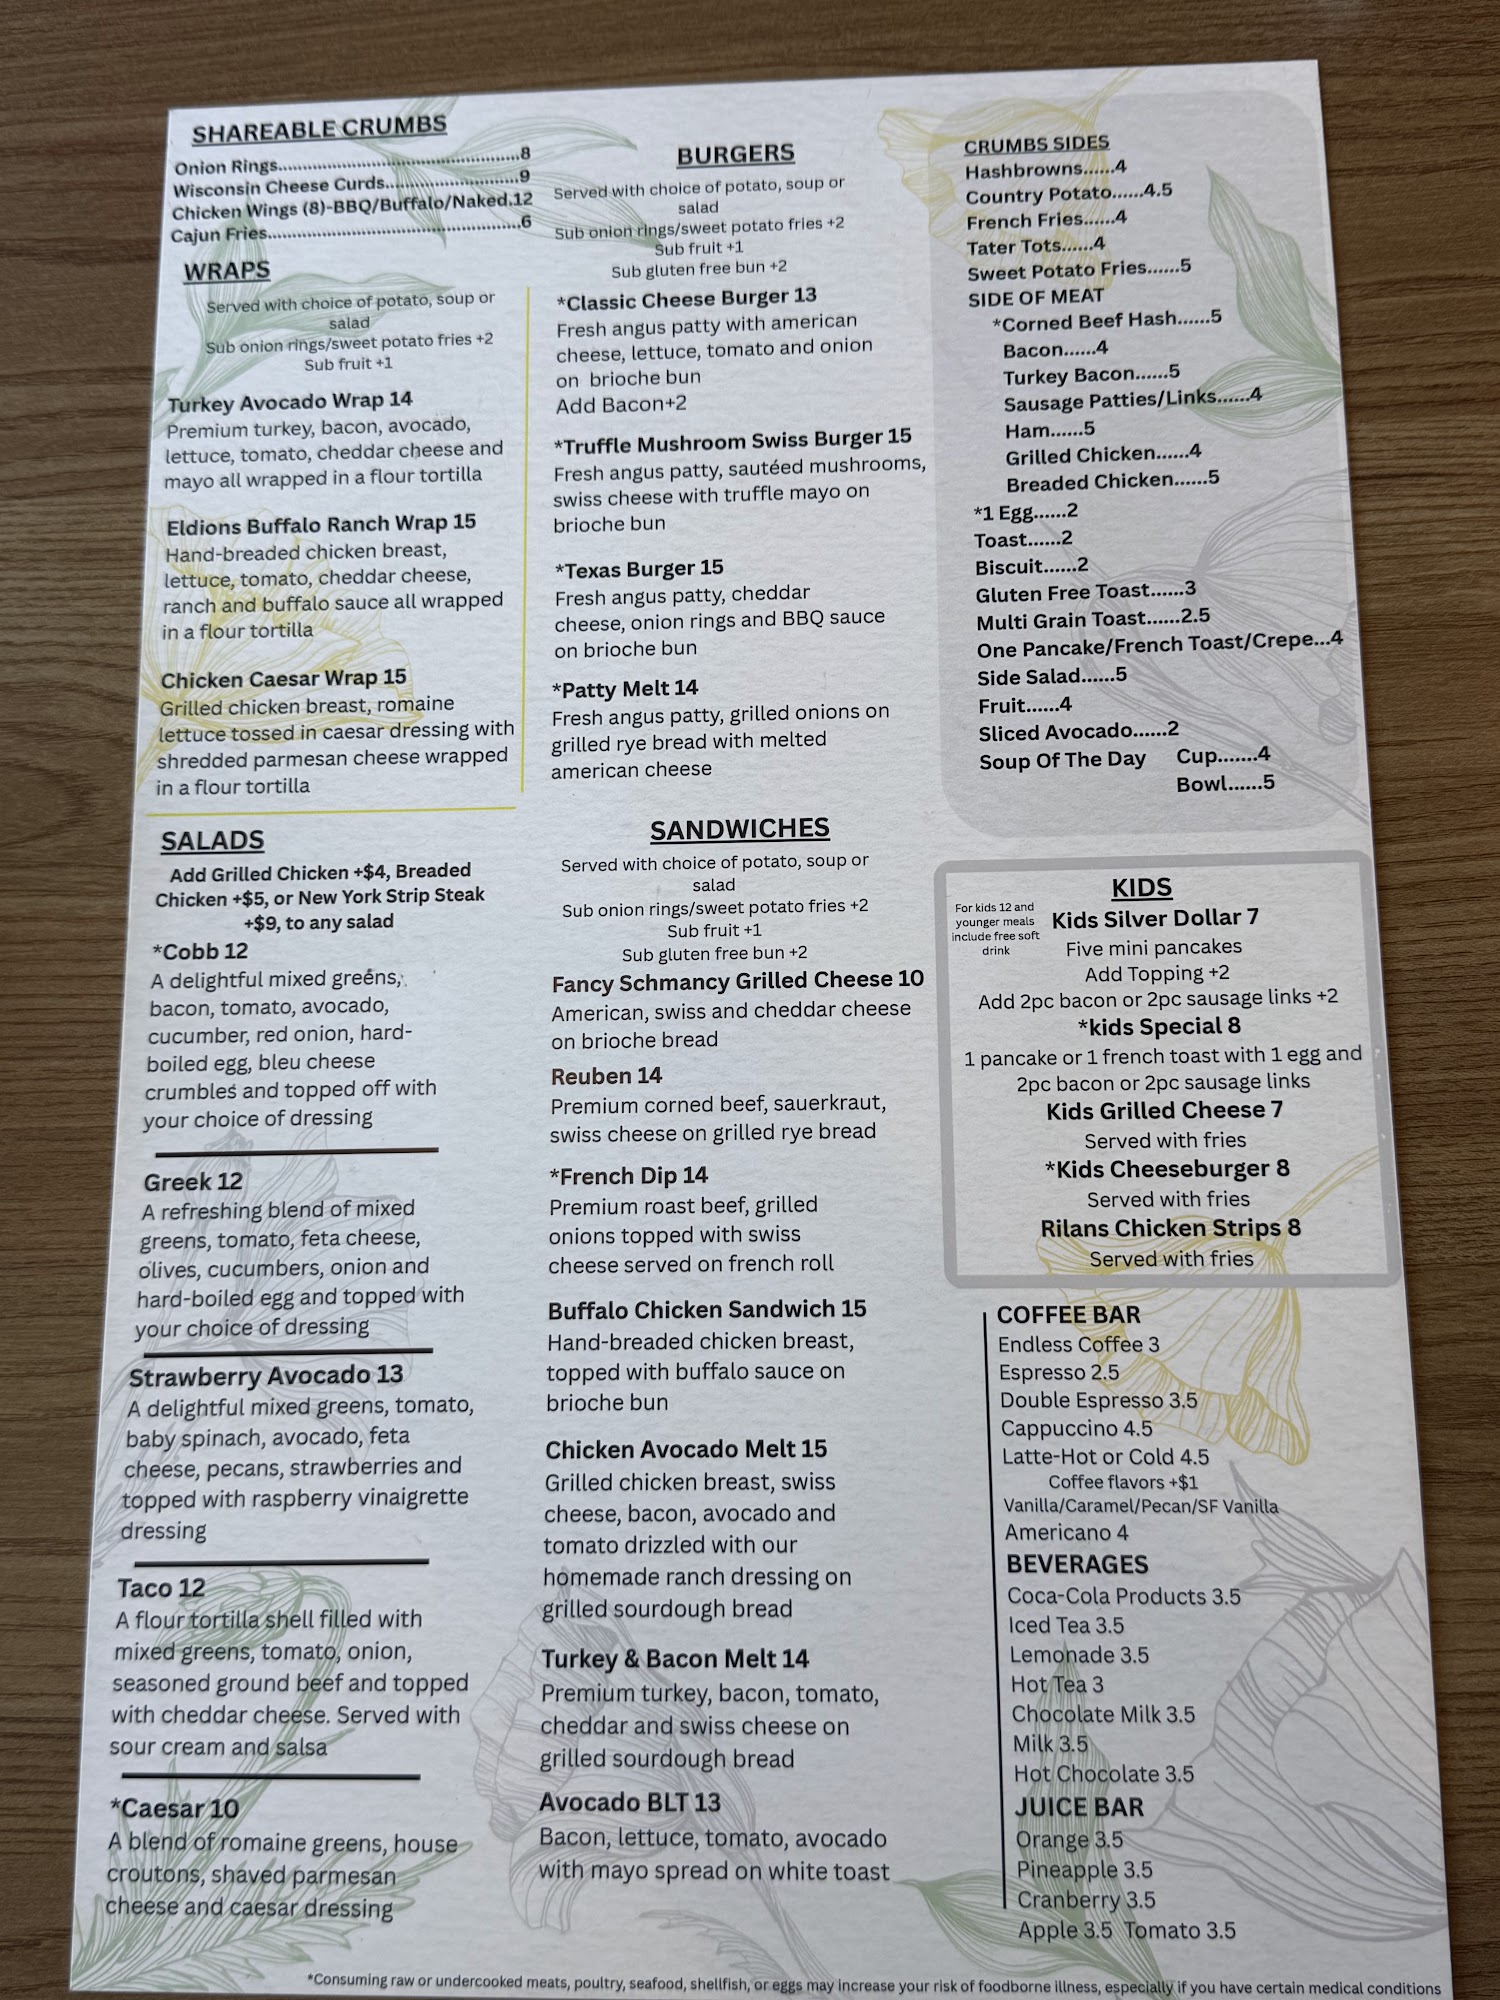 SHAREABLE CRUMBS
Onion Rings.................................................8
Wisconsin Cheese Curds...........................9
Chicken Wings (8)-BBQ/Buffalo/Naked.12
Cajun Fries...................................................6
WRAPS
Served with choice of potato, soup or
salad
Sub onion rings/sweet potato fries +2
Sub fruit +1
Turkey Avocado Wrap 14
Premium turkey, bacon, avocado,
lettuce, tomato, cheddar cheese and
mayo all wrapped in a flour tortilla
Eldions Buffalo Ranch Wrap 15
Hand-breaded chicken breast,
lettuce, tomato, cheddar cheese,
ranch and buffalo sauce all wrapped
in a flour tortilla
Chicken Caesar Wrap 15
Grilled chicken breast, romaine
lettuce tossed in caesar dressing with
shredded parmesan cheese wrapped
in a flour tortilla
SALADS
Add Grilled Chicken +$4, Breaded
Chicken +$5, or New York Strip Steak
+$9, to any salad
*Cobb 12
A delightful mixed greens,
bacon, tomato, avocado,
cucumber, red onion, hard-
boiled egg, bleu cheese
crumbles and topped off with
your choice of dressing
Greek 12
A refreshing blend of mixed
greens, tomato, feta cheese,
olives, cucumbers, onion and
hard-boiled egg and topped with
your choice of dressing
Strawberry Avocado 13
A delightful mixed greens, tomato,
baby spinach, avocado, feta
cheese, pecans, strawberries and
topped with raspberry vinaigrette
dressing
Taco 12
A flour tortilla shell filled with
mixed greens, tomato, onion,
seasoned ground beef and topped
with cheddar cheese. Served with
sour cream and salsa
*Caesar 10
A blend of romaine greens, house
croutons, shaved parmesan
cheese and caesar dressing
BURGERS
Served with choice of potato, soup or
salad
Sub onion rings/sweet potato fries +2
Sub fruit +1
Sub gluten free bun +2
*Classic Cheese Burger 13
Fresh angus patty with american
cheese, lettuce, tomato and onion
on brioche bun
Add Bacon+2
*Truffle Mushroom Swiss Burger 15
Fresh angus patty, sautéed mushrooms,
swiss cheese with truffle mayo on
brioche bun
*Texas Burger 15
Fresh angus patty, cheddar
cheese, onion rings and BBQ sauce
on brioche bun
*Patty Melt 14
Fresh angus patty, grilled onions on
grilled rye bread with melted
american cheese
SANDWICHES
Served with choice of potato, soup or
salad
Sub onion rings/sweet potato fries +2
Sub fruit +1
Sub gluten free bun +2
Fancy Schmancy Grilled Cheese 10
American, swiss and cheddar cheese
on brioche bread
Reuben 14
Premium corned beef, sauerkraut,
swiss cheese on grilled rye bread
*French Dip 14
Premium roast beef, grilled
onions topped with swiss
cheese served on french roll
Buffalo Chicken Sandwich 15
Hand-breaded chicken breast,
topped with buffalo sauce on
brioche bun
Chicken Avocado Melt 15
Grilled chicken breast, swiss
cheese, bacon, avocado and
tomato drizzled with our
homemade ranch dressing on
grilled sourdough bread
Turkey & Bacon Melt 14
Premium turkey, bacon, tomato,
cheddar and swiss cheese on
grilled sourdough bread
Avocado BLT 13
Bacon, lettuce, tomato, avocado
with mayo spread on white toast
CRUMBS SIDES
Hashbrowns......4
Country Potato......4.5
French Fries......4
Tater Tots......4
Sweet Potato Fries......5
SIDE OF MEAT
*Corned Beef Hash......5
Bacon......4
Turkey Bacon......5
Sausage Patties/Links......4
Ham......5
Grilled Chicken......4
Breaded Chicken......5
*1 Egg......2
Toast......2
Biscuit......2
Gluten Free Toast......3
Multi Grain Toast......2.5
One Pancake/French Toast/Crepe...4
Side Salad......5
Fruit......4
Sliced Avocado......2
Soup Of The Day Cup.......4
Bowl......5
KIDS
For kids 12 and
younger meals
include free soft
drink
Kids Silver Dollar 7
Five mini pancakes
Add Topping +2
Add 2pc bacon or 2pc sausage links +2
*kids Special 8
1 pancake or 1 french toast with 1 egg and
2pc bacon or 2pc sausage links
Kids Grilled Cheese 7
Served with fries
*Kids Cheeseburger 8
Served with fries
Rilans Chicken Strips 8
Served with fries
COFFEE BAR
Endless Coffee 3
Espresso 2.5
Double Espresso 3.5
Cappuccino 4.5
Latte-Hot or Cold 4.5
Coffee flavors +$1
Vanilla/Caramel/Pecan/SF Vanilla
Americano 4
BEVERAGES
Coca-Cola Products 3.5
Iced Tea 3.5
Lemonade 3.5
Hot Tea 3
Chocolate Milk 3.5
Milk 3.5
Hot Chocolate 3.5
JUICE BAR
Orange 3.5
Pineapple 3.5
Cranberry 3.5
Apple 3.5 Tomato 3.5
*Consuming raw or undercooked meats, poultry, seafood, shellfish, or eggs may increase your risk of foodborne illness, especially if you have certain medical conditions